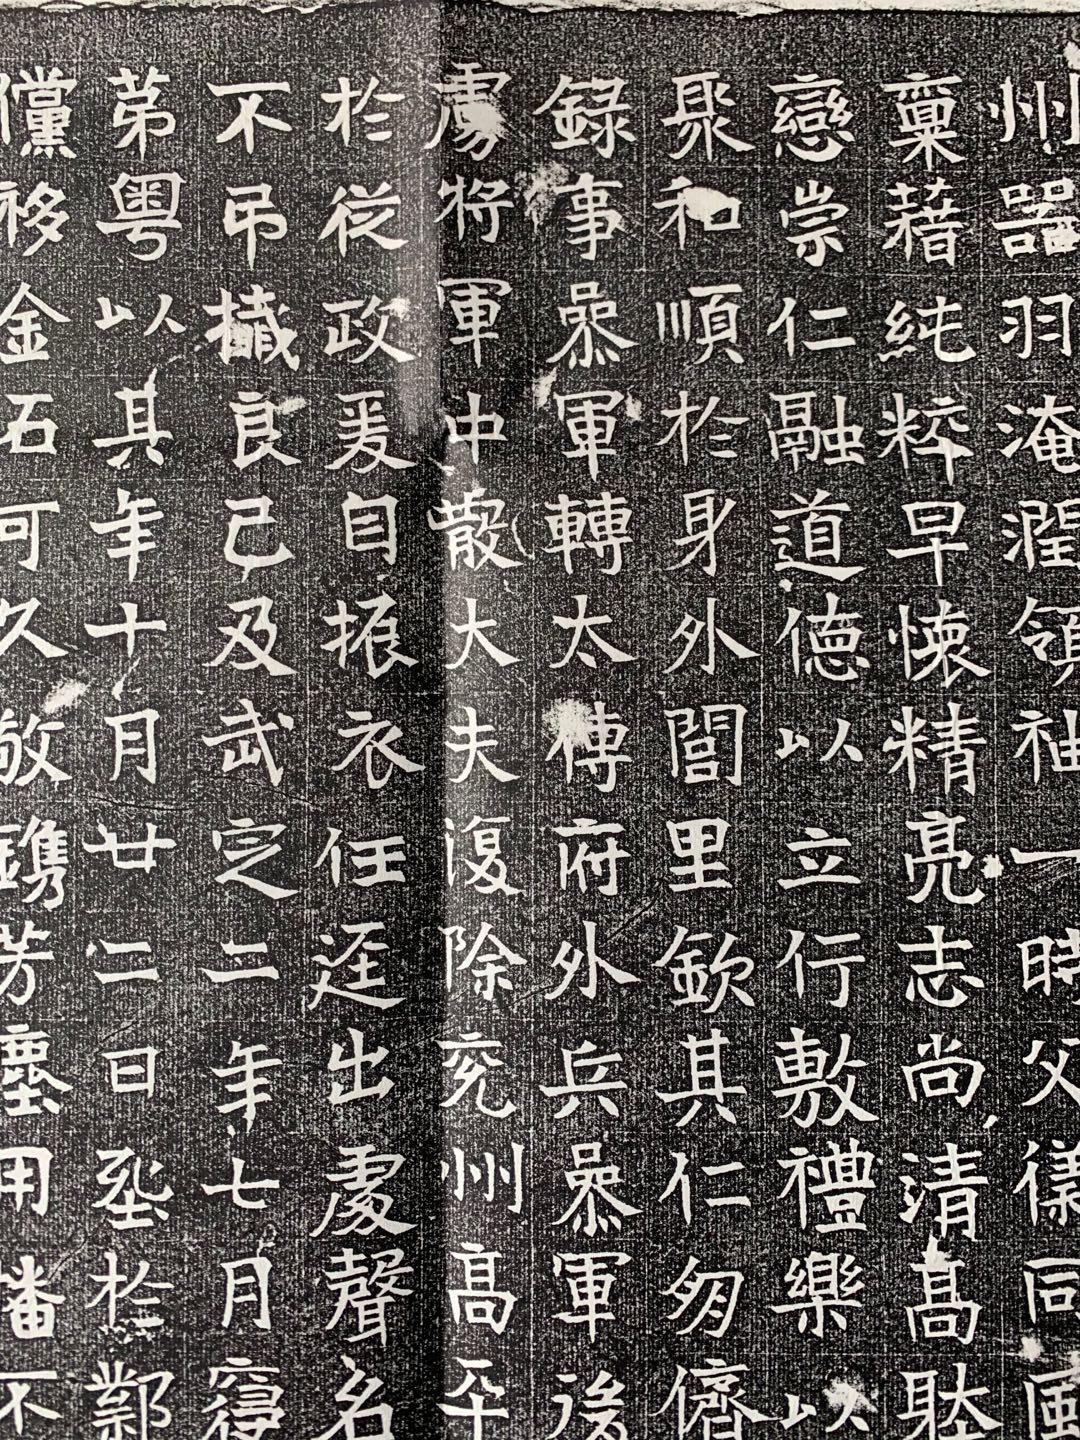 州器羽淹潤領袖一時父禕同風
稟藉純粹早懷精亮志尚清高
戀崇仁融道德以立行敷禮樂以
聚和順於身外閭里欽其仁朋儕
錄事叅軍轉太傅府外兵叅軍後
虜將軍中散大夫復除兗州高平
於從政爰自振衣任遥出處聲名
不弔殲良己及武定二年七月寢
苐粵以其年十月廿二日塟於鄴
儻移金石可久敬鐫芳塵用播不